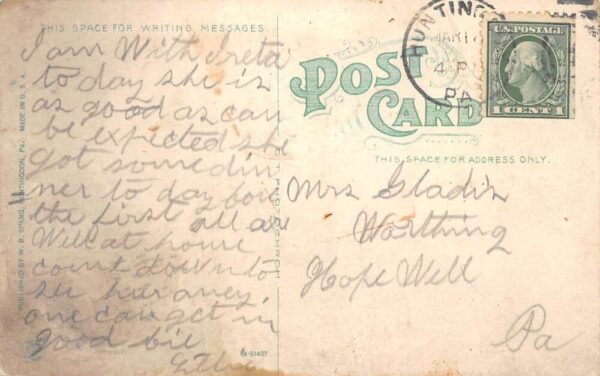 THIS SPACE FOR WRITING MESSAGES
I am With Ireta
to day she is
as good as can
be expected she
got some din
ner to day
the first all are
Well at home
come down to
see her aney
one can get in
good bie
PUBLISHED BY W. B. SPANG, HUNTINGDON, PA. MADE IN U.S.A.
A-51407
POST
CARD
THIS SPACE FOR ADDRESS ONLY.
HUNTING
MAR 17
4 P
PA
U.S. POSTAGE
1 CENT 1
Mrs Gladis
Worthing
Hope Well
Pa